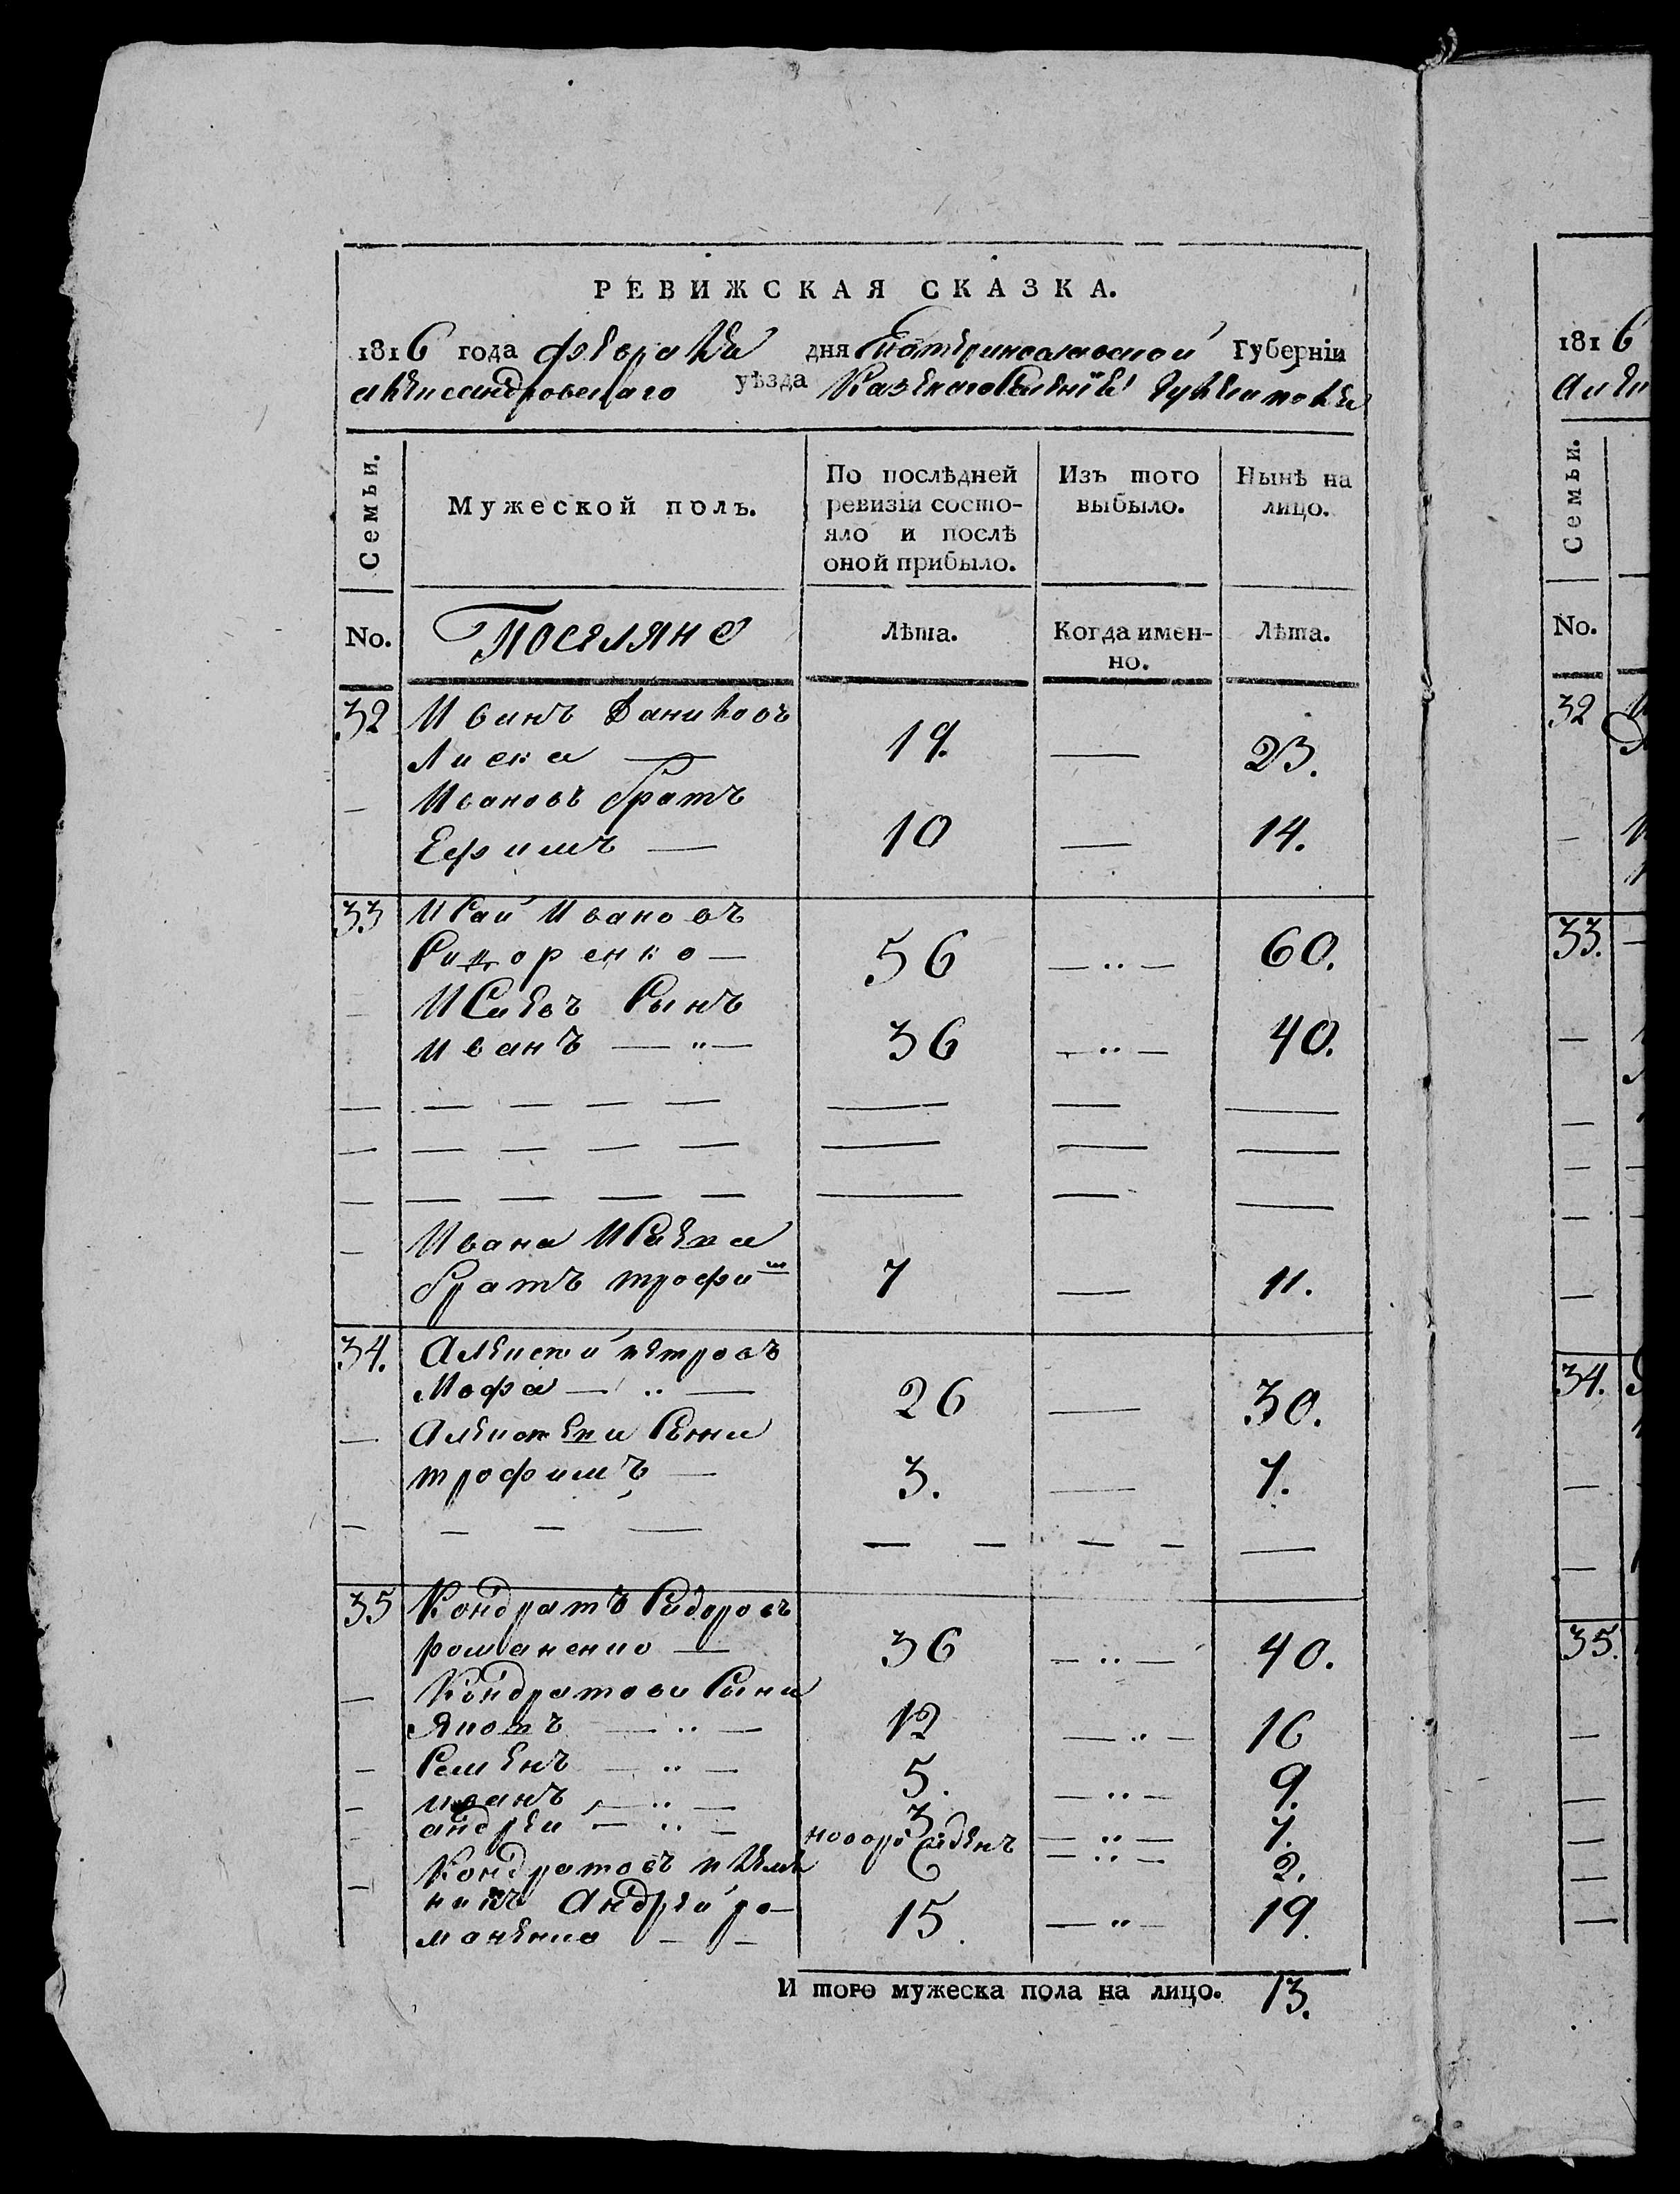 РЕВИЖСКАЯ СКАЗКА.
1816 года февраля дня Екатеринославской Губерніи
Александровскаго уѣзда Казеннаго Селенія
Семьи.
Мужеской полъ.
По послѣдней
ревизіи состо-
яло и послѣ
оной прибыло.
Изъ того
выбыло.
Нынѣ на
лицо.
No.
Поселяне
Лѣта.
Когда имен-
но.
Лѣта.
32 Иванъ Даниловъ
Лиска — 19. — 23.
— Ивановъ братъ
Ефимъ — 10 — 14.
33 Исай Ивановъ
Сидоренко — 56 — .. — 60.
— Исаевъ Сынъ
Иванъ — .. — 36 — .. — 40.
— Ивана Исаева
братъ трофим 7 — 11.
34. Алексей петровъ
Мофа — .. — 26 — 30.
— Алексеева Сынъ
трофимъ — 3. — 7.
35 Кондратъ Сидоровъ
романенко — 36 — .. — 40.
— Кондратовы Сыны
Яковъ — .. — 12 — .. — 16
— Семенъ — .. — 5. — .. — 9.
— иванъ — .. — 3. — .. — 7.
— андреи — .. — новорожденъ — .. — 2.
— Кондратовъ племе
никъ Андрей ро-
маненко — — 15. — .. — 19.
И того мужеска пола на лицо. 13.
1816
Але
Семьи.
No.
32
33.
34.
35.